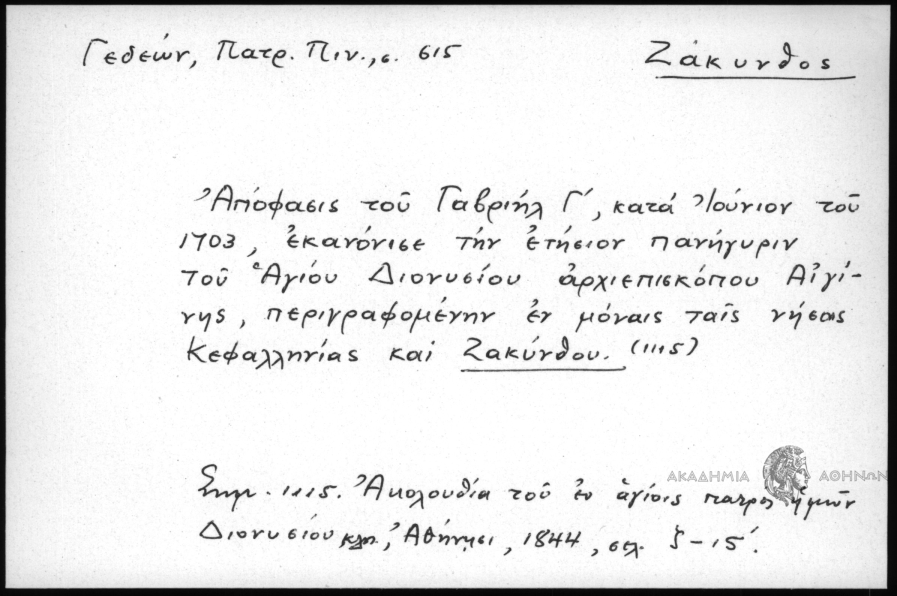 Γεδεών, Πατρ. Πιν., σ. 615
Ζάκυνθος
Ἀπόφασις τοῦ Γαβριήλ Γ΄, κατά Ἰούνιον τοῦ
1703, ἐκανόνισε τήν ἐτήσιον πανήγυριν
τοῦ Ἁγίου Διονυσίου ἀρχιεπισκόπου Αἰγί-
νης, περιγραφομένην ἐν μόναις ταῖς νήσοις
Κεφαλληνίας καί Ζακύνθου. (1115)
Σημ. 1115. Ἀκολουθία τοῦ ἐν ἁγίοις πατρός ἡμῶν
Διονυσίου κλπ, Ἀθήνησι, 1844, σελ. ζ-15΄.
ΑΚΑΔΗΜΙΑ ΑΘΗΝΩΝ